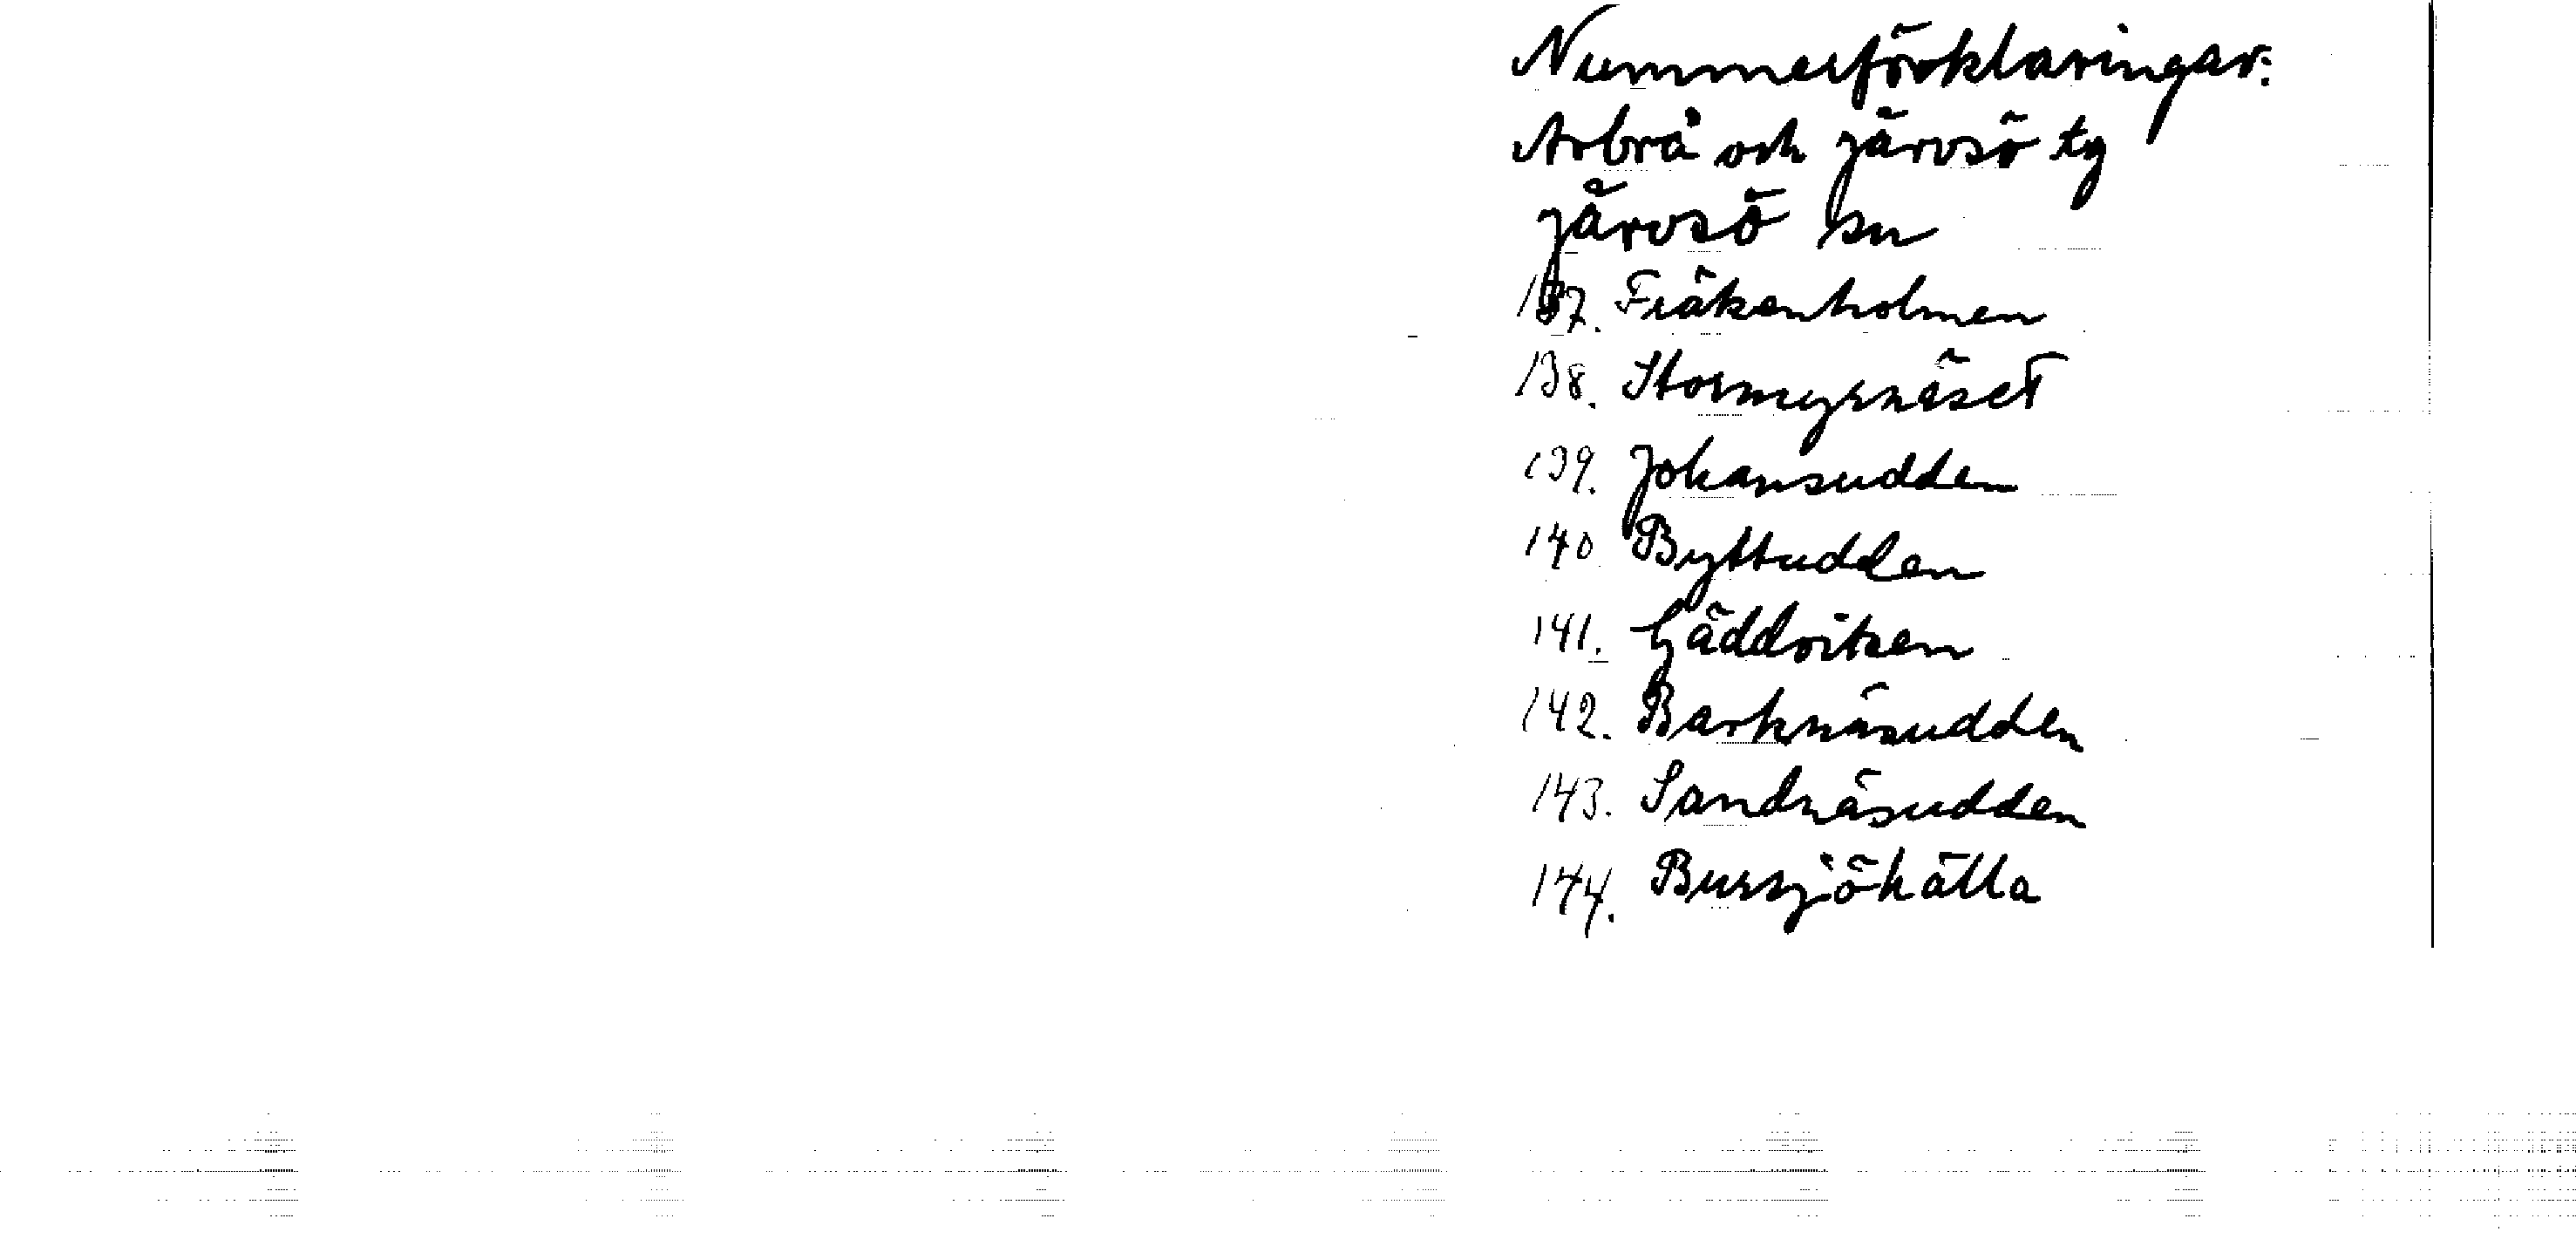 Nummerförklaringar:
Arbrå och Järvsö tg
Järvsö sn
137. Fräkenholmen
138. Stormyrnäset
139. Johansudden
140 Byttudden
141. Gäddviken
142. Barknäsudden
143. Sandnäsudden
144. Bursjökälla